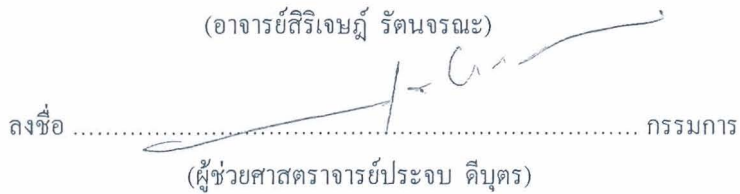 (อาจารย์สิริเจษฎ์ รัตนจรณะ)
ลงชื่อ ........................................................................ กรรมการ
(ผู้ช่วยศาสตราจารย์ประจบ ดีบุตร)